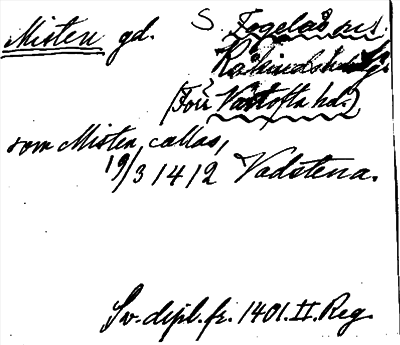 Misten gd. S. Fogelås sn.
(Förr Vartofta hd.)
som Misten callas,
19/3 1412 Vadstena.
Sv. dipl. fr. 1401. II. Reg.